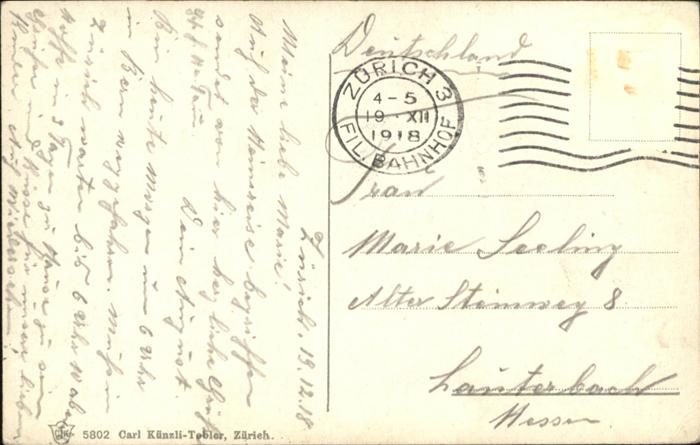 Zürich, 19.12.18
Meine liebe Marie!
Auf der Heimreise begriffen
sendet von hier herzliche Grüße
Dein August
Bin heute morgen um 6 Uhr
in Bern
Zürich warten bis 6 Uhr
in 3 Tagen zu Hause zu sein
Auf Wiedersehen!
Deutschland
ZÜRICH 3
4-5
19. XII
1918
FIL. BAHNHOF
Frau
Marie Seeling
Alter Steinweg 8
Lauterbach
Hessen
5802 Carl Künzli-Tobler, Zürich.